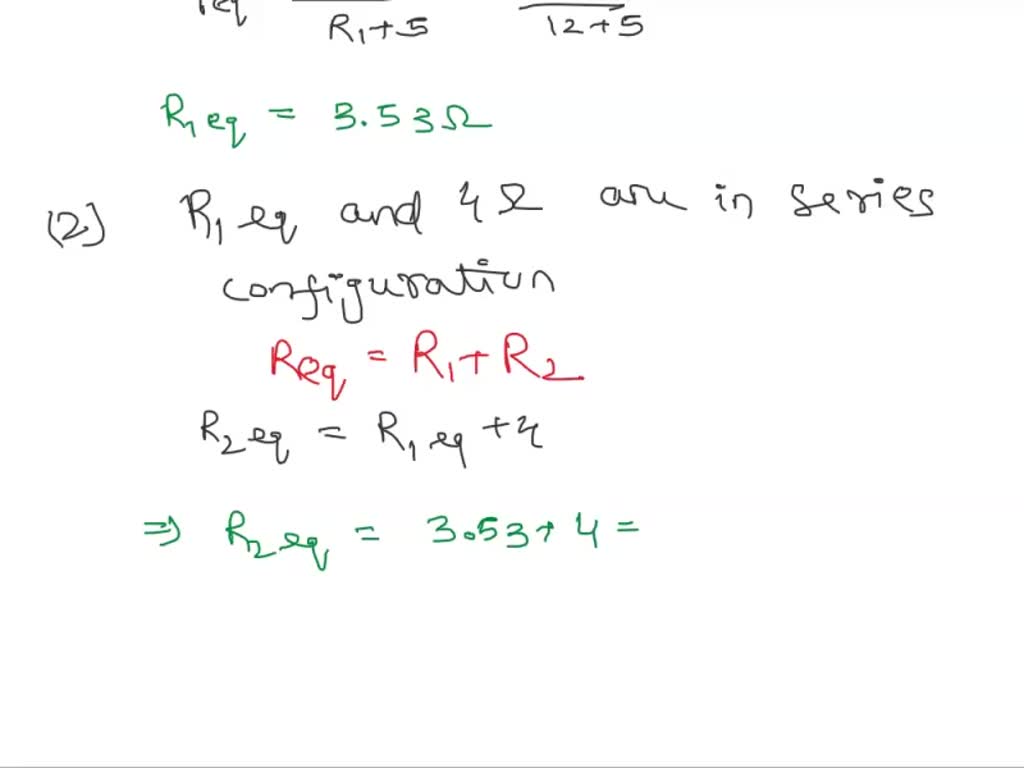 R₁+5 12+5
R₁eq = 3.53Ω
(2) R₁eq and 4Ω are in series
configuration
Req = R₁+R₂
R₂eq = R₁eq +4
⇒ R₂eq = 3.53+4 =